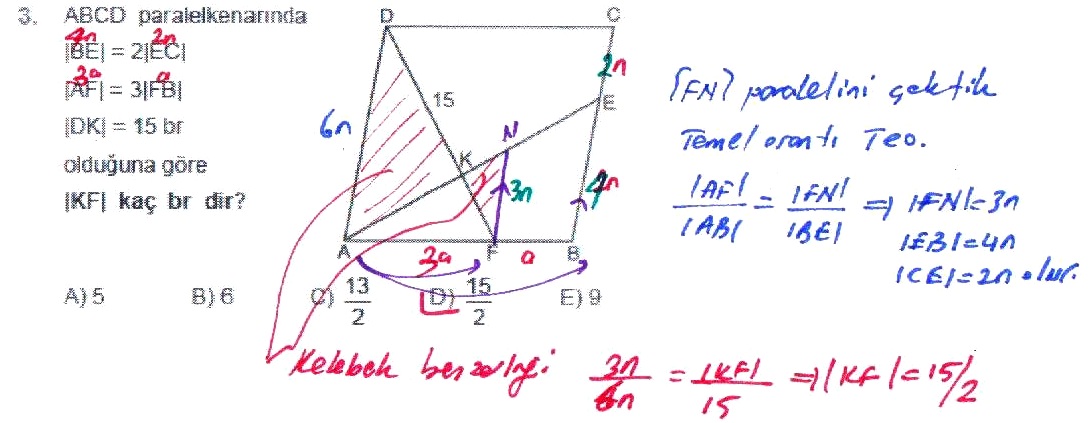 3. ABCD paralelkenarında
4n 2n
|BE| = 2|EC|
3a a
|AF| = 3|FB|
|DK| = 15 br
olduğuna göre
|KF| kaç br dir?
A) 5 B) 6 C) 13/2 D) 15/2 E) 9
D C
2n
15 E
6n N
K
3n 4n
A F B
3a a
[FN] paralelini çektik
Temel orantı Teo.
|AF|/|AB| = |FN|/|BE| ⇒ |FN|=3n
|EB|=4n
|CE|=2n olur.
Kelebek benzerliği 3n/6n = |KF|/15 ⇒ |KF|=15/2